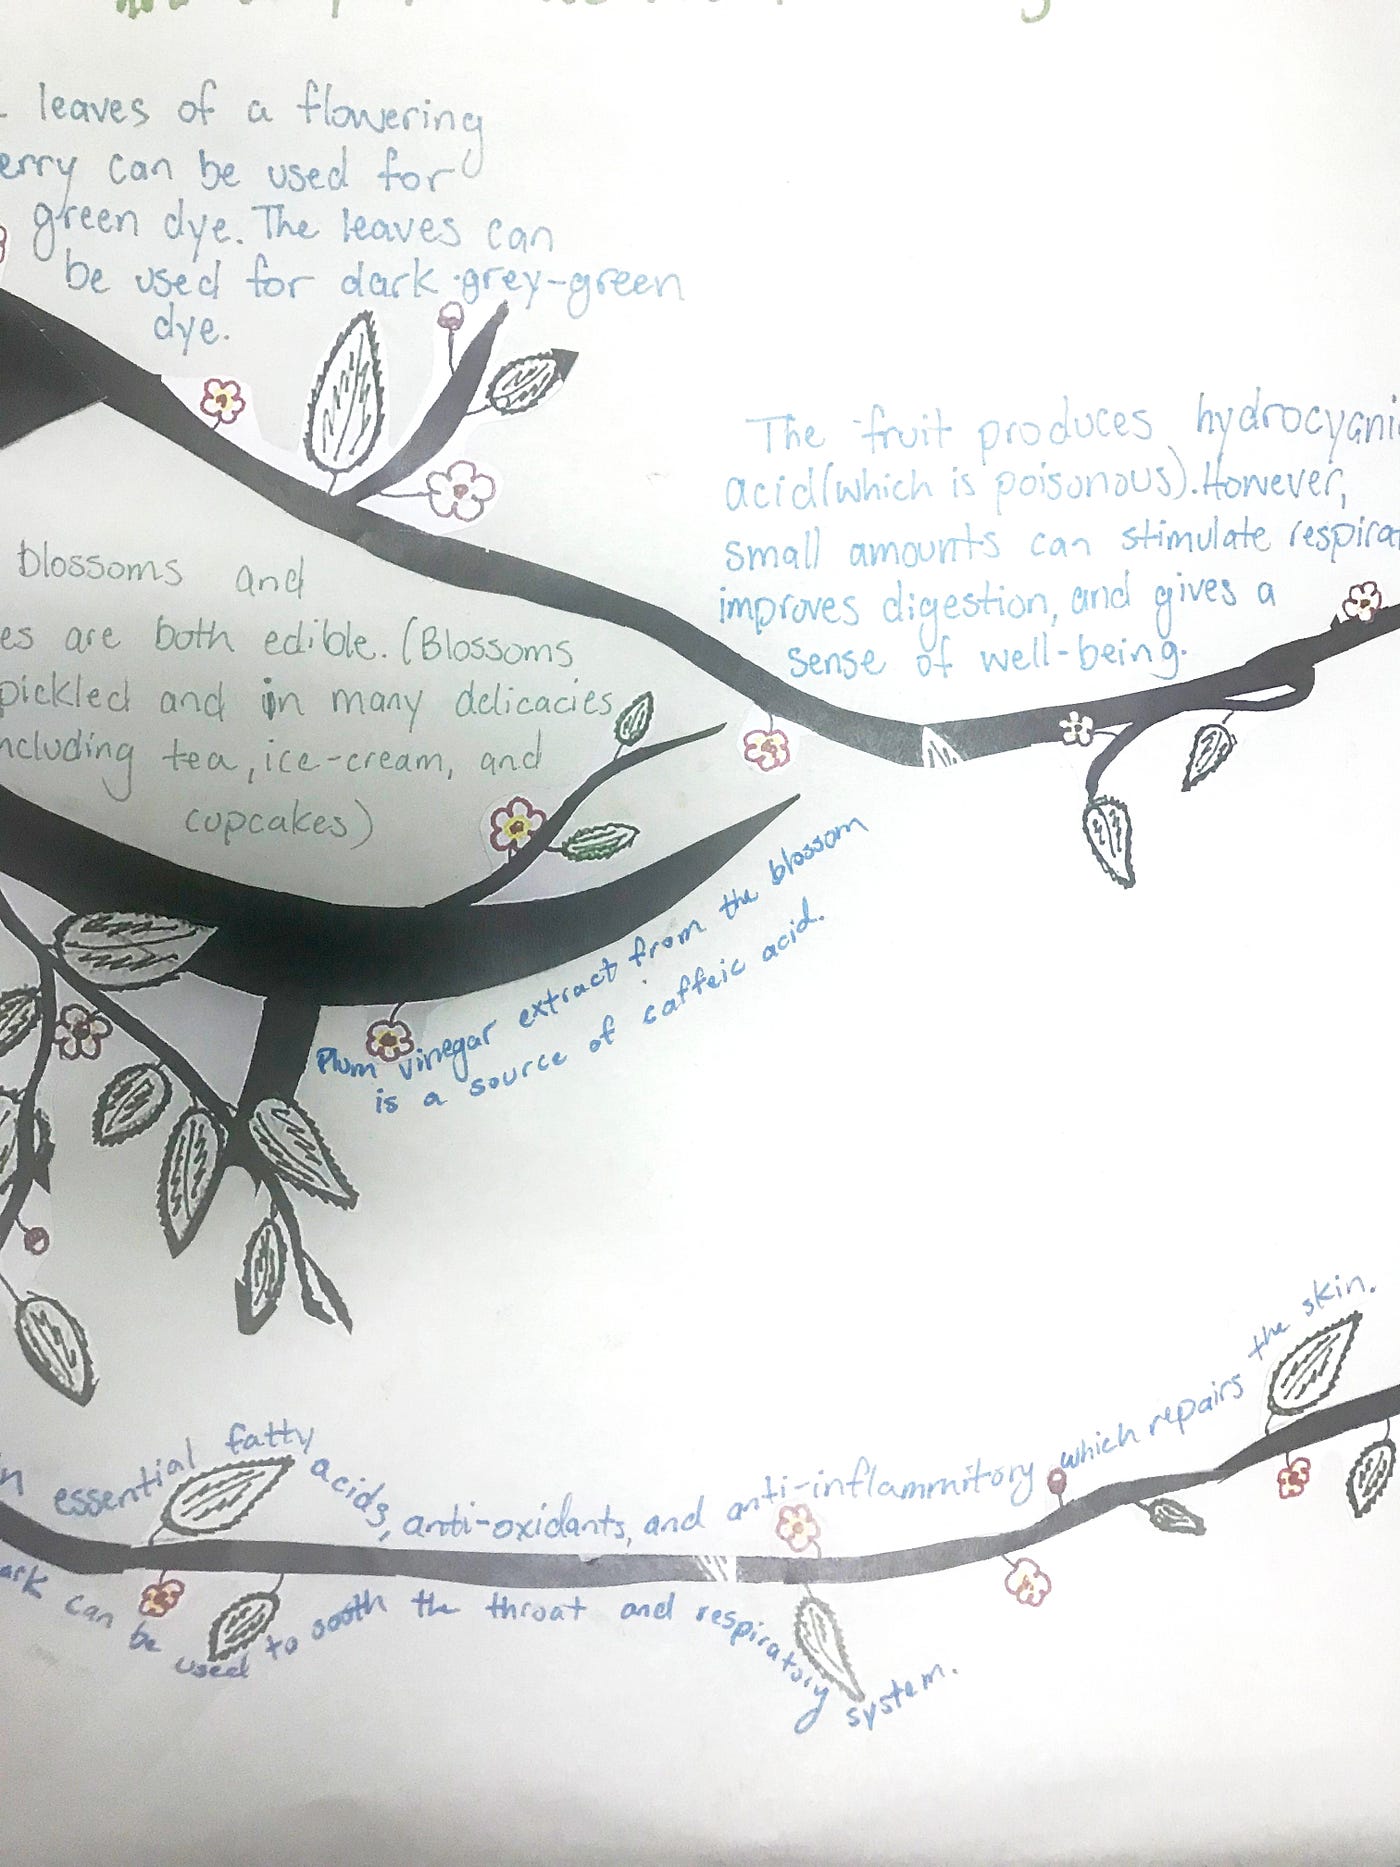 leaves of a flowering
erry can be used for
green dye. The leaves can
be used for dark grey-green
dye.
The fruit produces hydrocyani
acid(which is poisonous). However,
small amounts can stimulate respira
improves digestion, and gives a
sense of well-being.
blossoms and
es are both edible. (Blossoms
pickled and in many delicacies
ncluding tea, ice-cream, and
cupcakes)
Plum vinegar extract from the blossom
is a source of caffeic acid.
n essential fatty acids, anti-oxidants, and anti-inflammitory which repairs the skin.
ark can be used to sooth the throat and respiratory system.